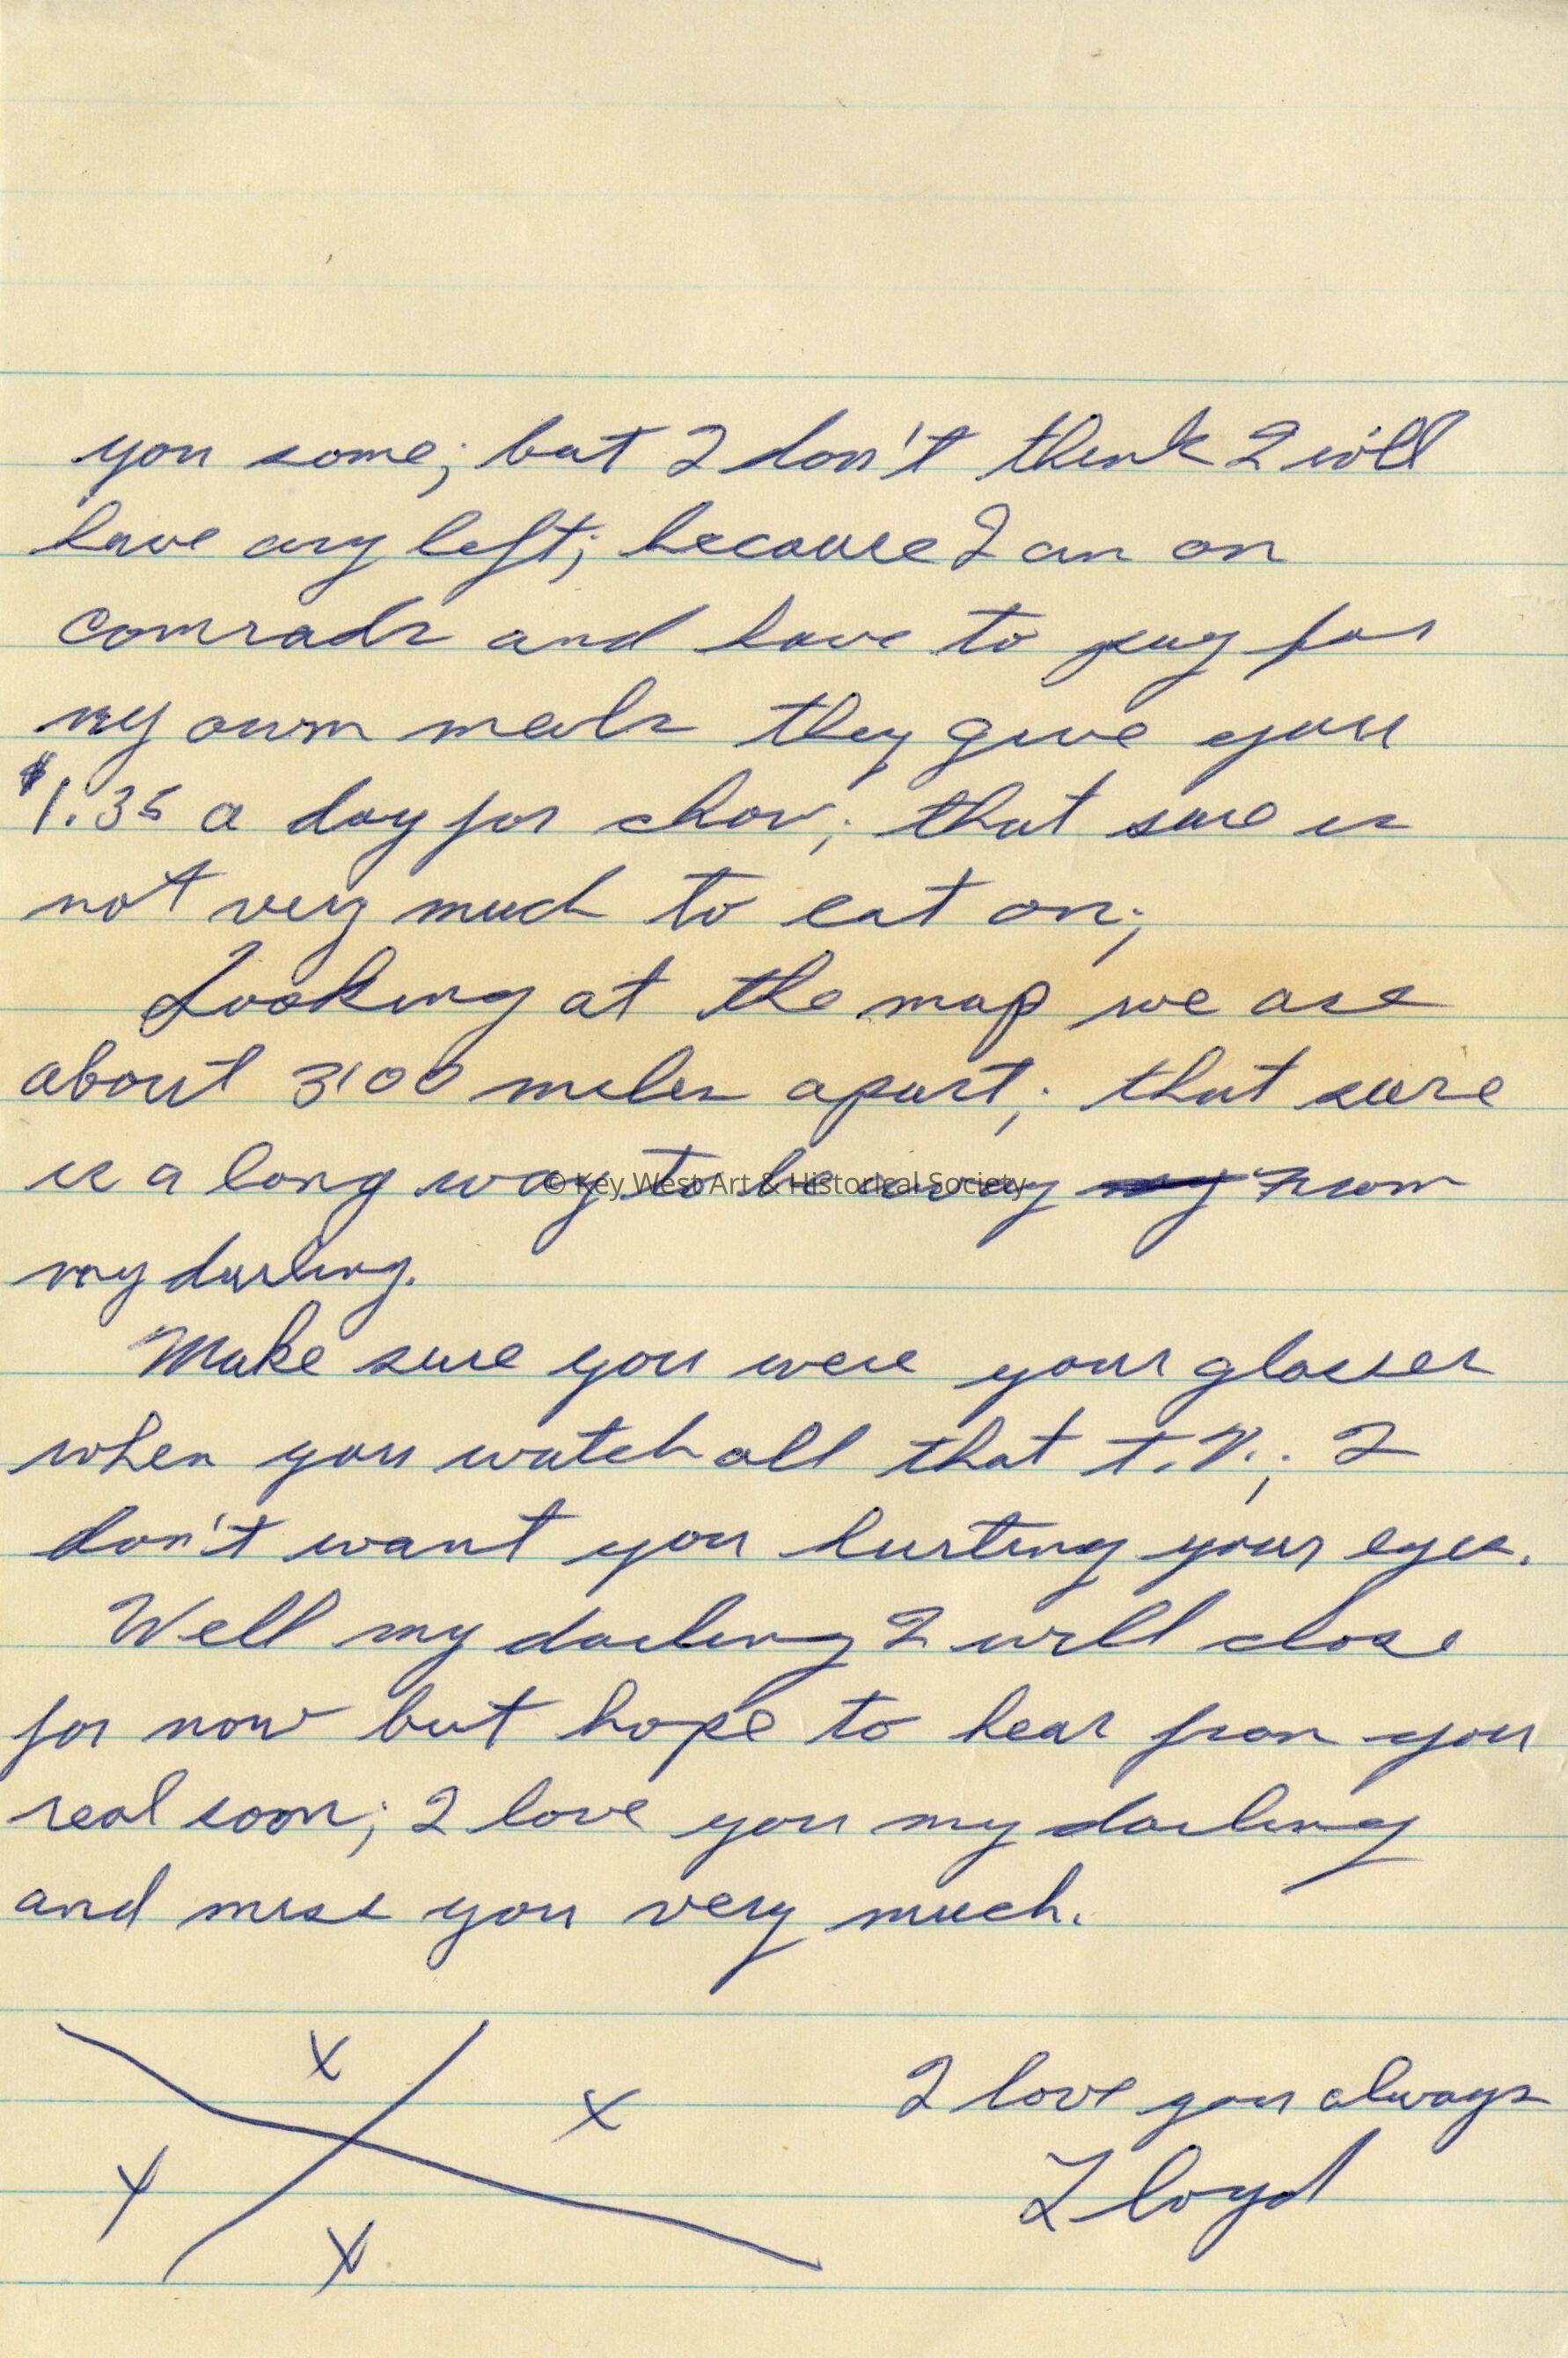 you some; but I don't think I will
have any left; because I am on
comrads and have to pay for
my own meals they give you
$1.35 a day for chow; that sure is
not very much to eat on;
Looking at the map we are
about 3100 miles apart; that sure
is a long way to be away from
© Key West Art & Historical Society
my darling.
Make sure you were your glasses
when you watch all that t.V.; I
don't want you hurting your eyes.
Well my darling I will close
for now but hope to hear from you
real soon; I love you my darling
and miss you very much.
x
x
I love you always
x
Lloyd
x